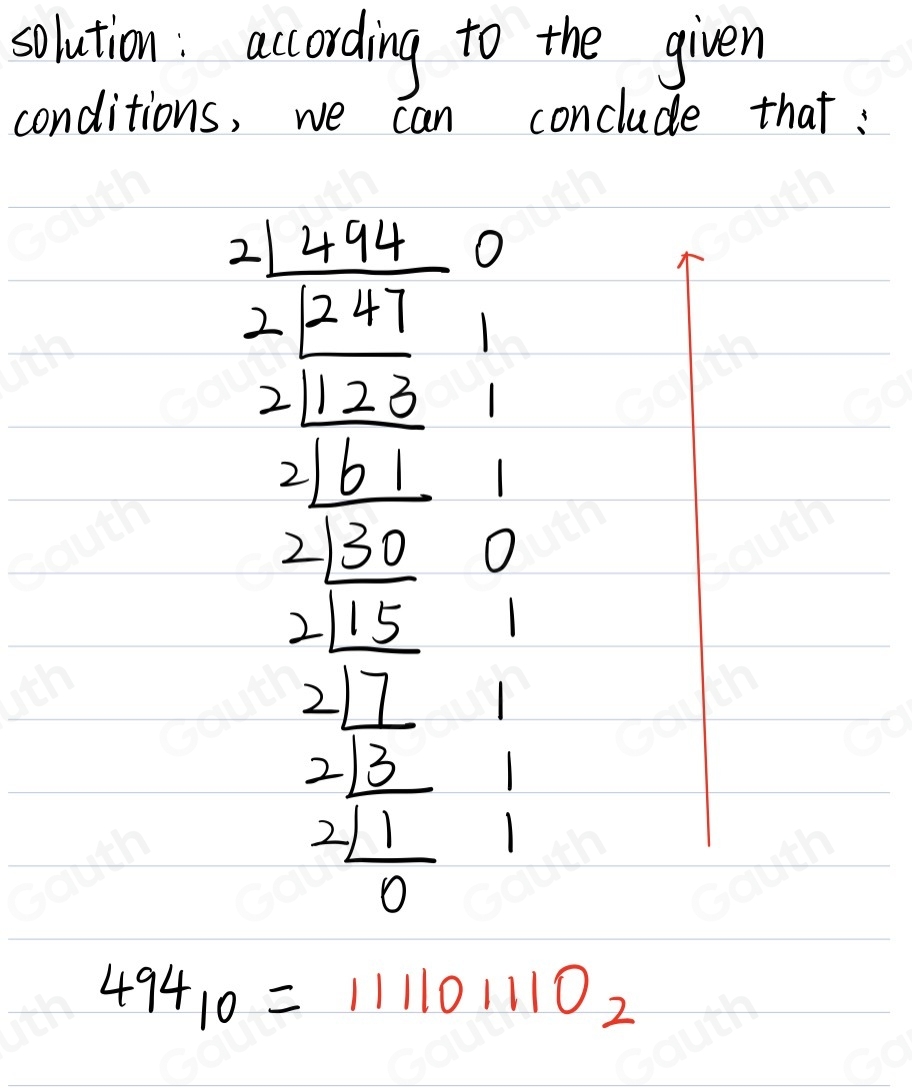 solution: according to the given
conditions, we can conclude that:
2 494 0
2 247 1
2 123 1
2 61 1
2 30 0
2 15 1
2 7 1
2 3 1
2 1 1
0
494₁₀ = 111101110₂
Gauth